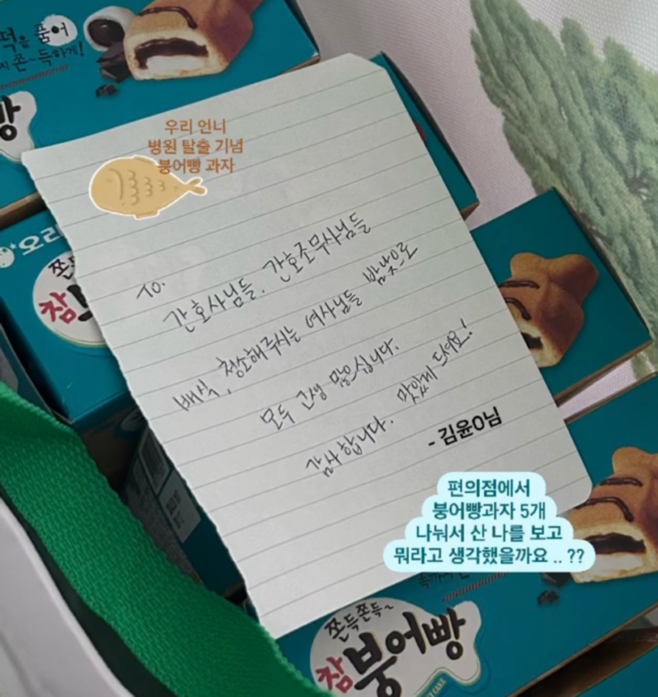 떡을 품어
쫀~득하게!
빵
우리 언니
병원 탈출 기념
붕어빵 과자
오리
쫀득
참
TO.
간호사님들, 간호조무사님들
배식, 청소해주시는 여사님들 밤낮으로
모두 고생 많으십니다.
감사합니다. 맛있게 드셔요!
- 김윤O님
편의점에서
붕어빵과자 5개
나눠서 산 나를 보고
뭐라고 생각했을까요 .. ??
쫀득쫀득~
참붕어빵